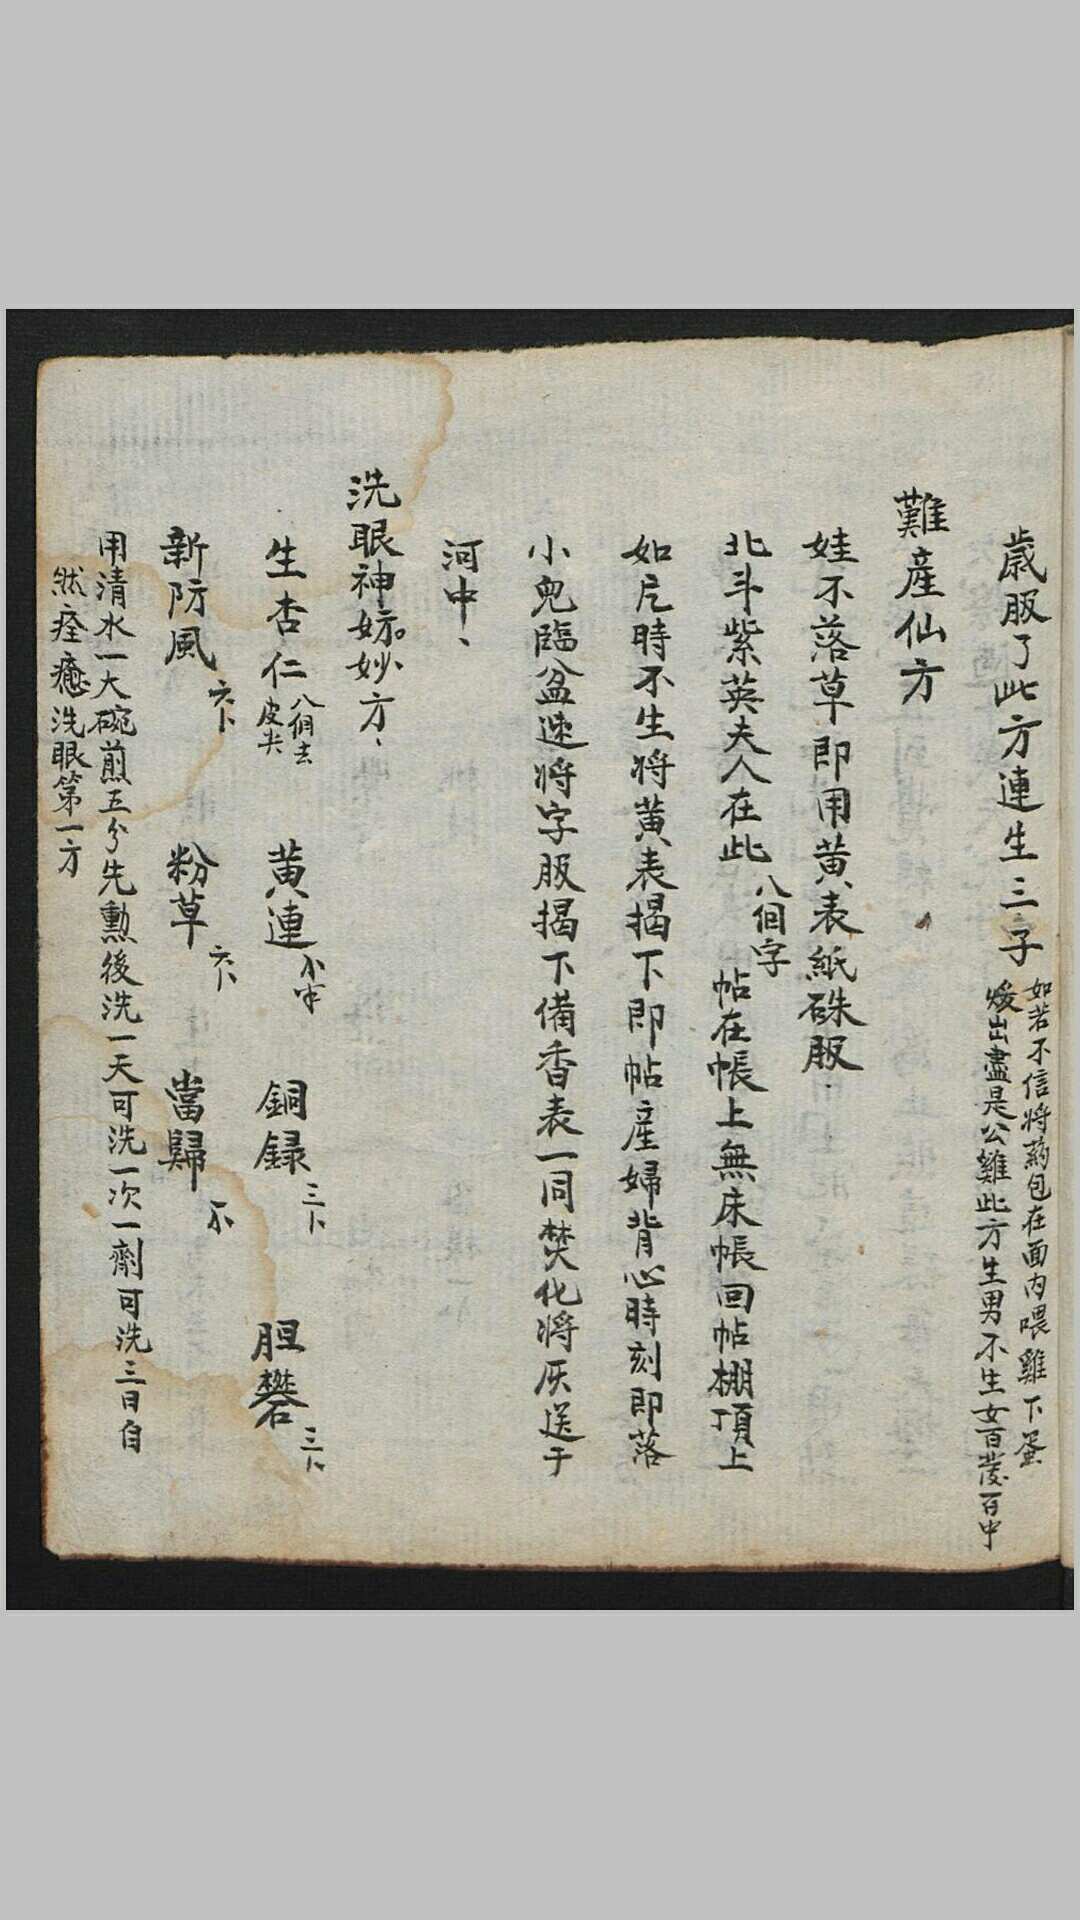 歲服了此方連生三子
如若不信將葯包在面内喂雞下蛋
煖出盡是公雞此方生男不生女百發百中
難產仙方
娃不落草即用黄表紙硃服
北斗紫英夫人在此
八個字
帖在帳上無床帳回帖棚頂上
如片時不生將黄表揭下即帖產婦背心時刻即落
小兒臨盆速將字服揭下備香表一同焚化將灰送于
河中、
洗眼神妙方、
生杏仁
八個去
皮尖
黄連
銅録
胆礬
新防風
粉草
當歸
用清水一大碗煎五分先熏後洗一天可洗一次一劑可洗三日自
然痊癒洗眼第一方